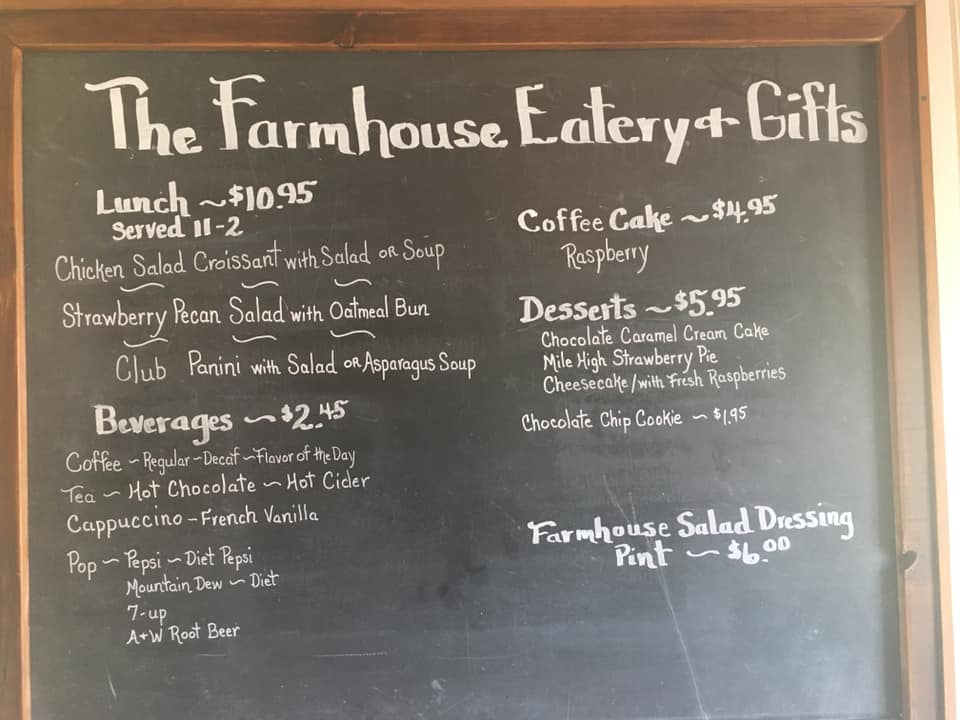 The Farmhouse Eatery + Gifts
Lunch ~ $10.95
Served 11-2
Chicken Salad Croissant with Salad OR Soup
Strawberry Pecan Salad with Oatmeal Bun
Club Panini with Salad OR Asparagus Soup
Beverages ~ $2.45
Coffee ~ Regular ~ Decaf ~ Flavor of the Day
Tea ~ Hot Chocolate ~ Hot Cider
Cappuccino - French Vanilla
Pop ~ Pepsi ~ Diet Pepsi
Mountain Dew ~ Diet
7-up
A+W Root Beer
Coffee Cake ~ $4.95
Raspberry
Desserts ~ $5.95
Chocolate Caramel Cream Cake
Mile High Strawberry Pie
Cheesecake/with Fresh Raspberries
Chocolate Chip Cookie ~ $1.95
Farmhouse Salad Dressing
Pint ~ $6.00